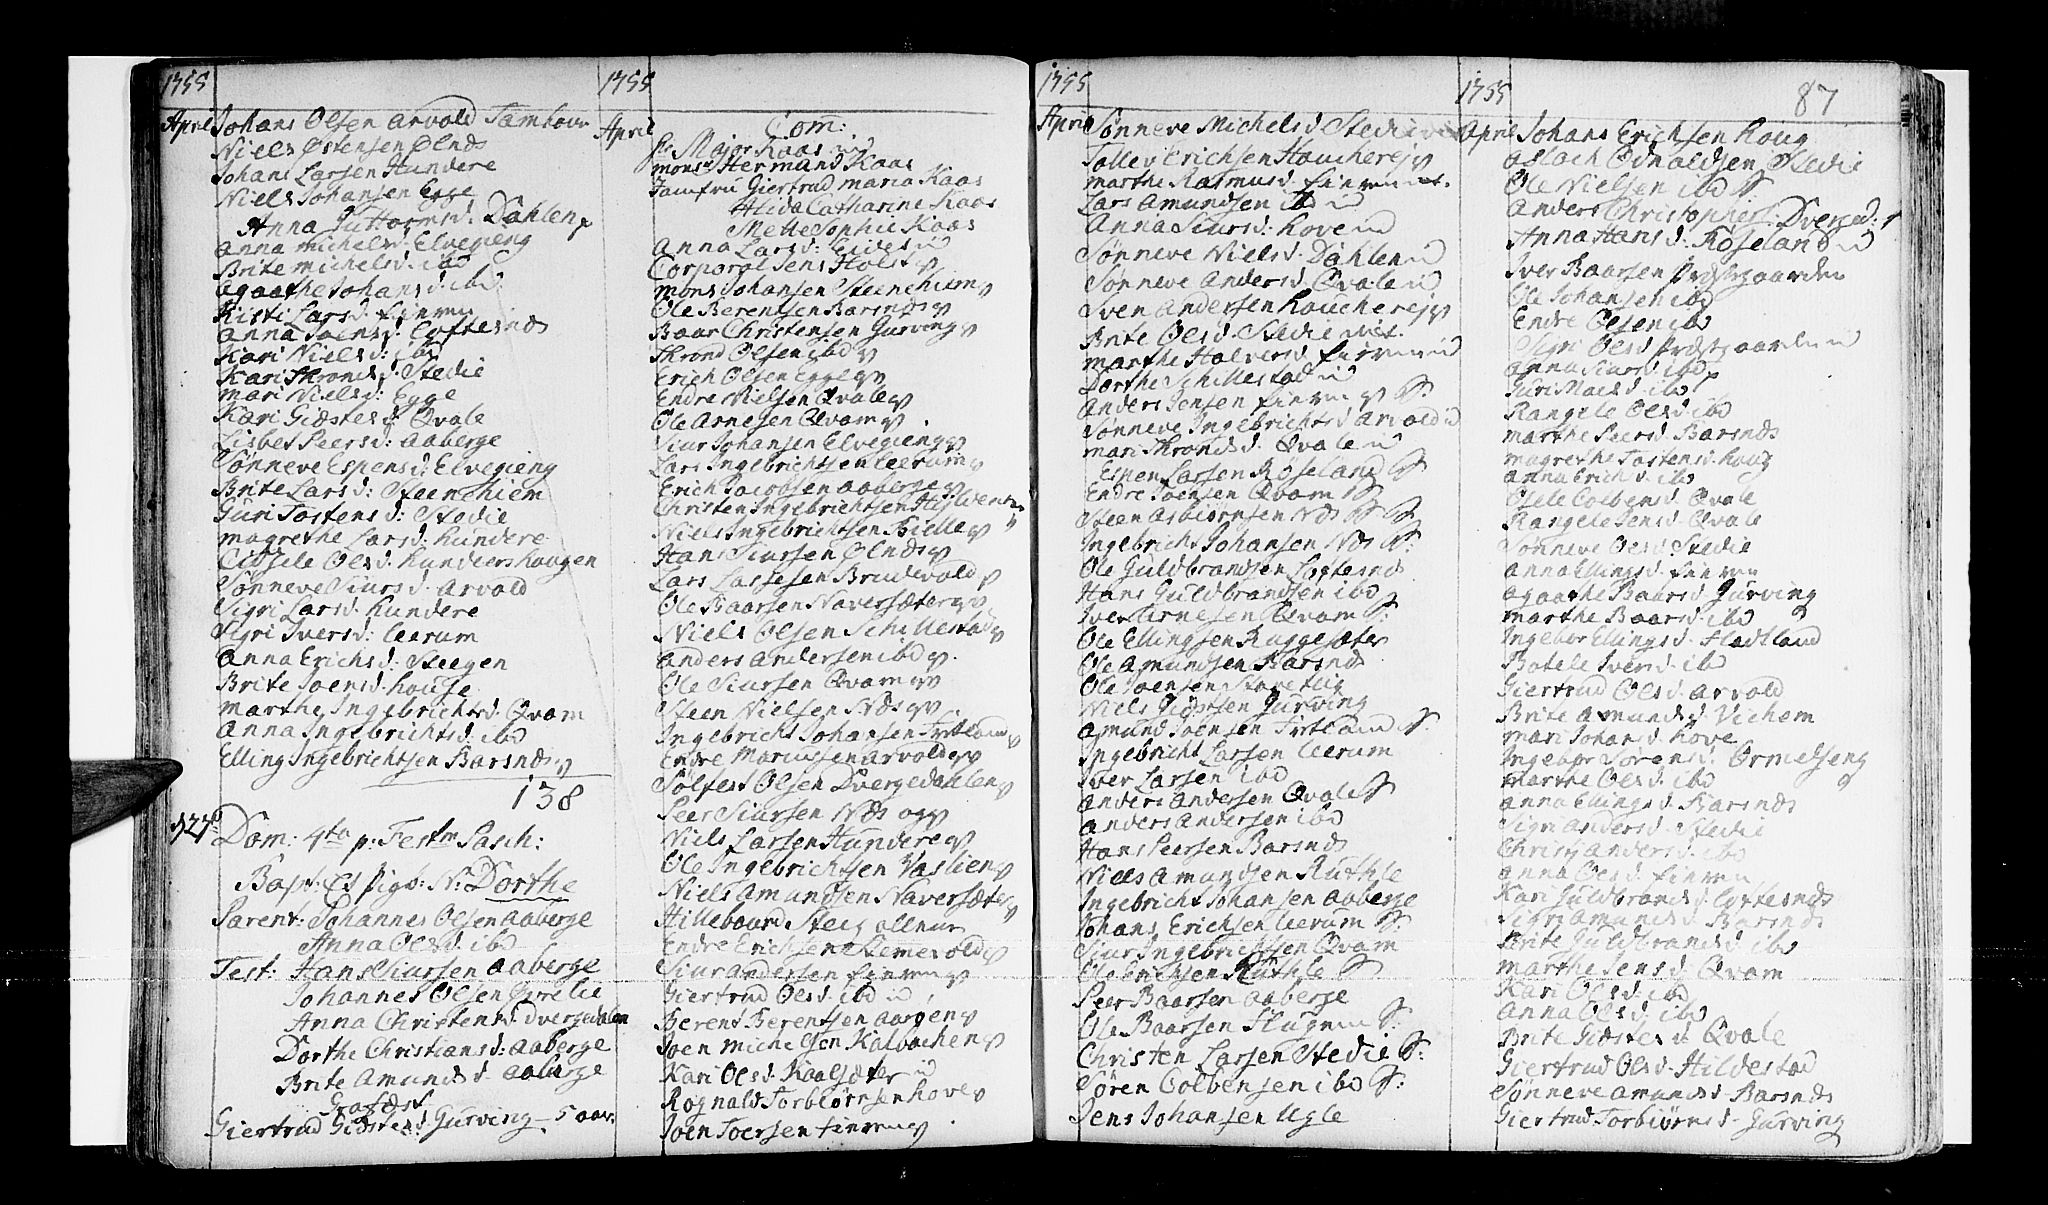 1755
April
Johans Olsen Arvold Tambour
Niels Østensen Ølnæs
Johans Larsen Hundere
Niels Johansen Egge
Anna Guttormsd: Dahlen
Anna Michelsd: Elvegieng
Brite Michelsd: ibd
Agaathe Johansd. ibd
Kisti Larsd.
Anna Joensd: Loftesnæs
Kari Nielsd: ibd
Kari Thronsd: Stedie
Mari Nielsd: Egge
Kari Giøstensd: Qvale
Lisbet Peersd: Aaberge
Sønneve Espensd: Elvegieng
Brite Larsd: Steenhiem
Guri Tostensd: Stedie
Magrethe Larsd: Hundere
Cidsele Olsd: Hundershougen
Sønneve Siursd: Arvold
Sigri Larsd: Hundere
Sigri Iversd: Leerum
Anna Erichsd: Steegen
Brite Joensd: Houge
Marthe Ingebrichtsd. Qvam
Anna Ingebrichtsd: ibd
Elling Ingebrichtsen Barsnæs
138
d 27
Dom: 4ta p: Festm Pasch:
Bapt: Est pige: N: Dorthe
Parent: Johannes Olsen Aaberge
Anna Olsd: ibd
Test: Hans Siursen Aaberge
Johannes Olsen
Anna Christensd. Dvergedalen
Dorthe Christiansd: Aaberge
Brite Amundsd. Aaberge
Grafæst
Giertrud Giøstensd: Gurving 5 aar
1755
April
Com:
Hr Major Kaas
Mons: Hermand Kaas
Jamfru Giertrud Maria Kaas
Alida Catharine Kaas
Mette Sophie Kaas
Anna Larsd: Eides
Corporal Jens Holst
Mons Johansen Steenhiem
Ole Berentsen Barsnæs
Baar Christensen Gurving
Thrond Olsen ibd
Erich Olsen Egge
Endre Nielsen Qvale
Ole Arnesen Qvam
Siur Johansen Elvegieng
Lars Ingebrichtsen Leerum
Erich Jacobsen Aaberge
Christen Ingebrichtsen
Niels Ingebrichtsen Bielle
Hans Siursen Ølnæs
Lars Lassesen Brudevold
Ole Baarsen Naversæter
Niels Olsen Schillestad
Anders Andersen ibd
Ole Siursen Qvam
Steen Nielsen Næs
Ingebricht Johansen Frtland
Endre Mariussen Arvold
Sølfest Olsen Dvergedahlen
Peer Siursen Næs
Niels Larsen Hundere
Ole Ingebrichtsen Vaslien
Niels Amundsen Naversæter
Hillebourd Steig
Endre Erichsen
Siur Andersen
Giertrud Olsd. ibd
Berent Berentsen Aarøen
Joen Michelsen Kalvachen
Kari Olsd: Kaalsæter
Rognald Torbiørnsen Hove
Joen Joersen
1755
April
Sønneve Michelsd Stedie
Tollev Erichsen Houcherei
Marthe Rasmusd.
Lars Amundsen ibd
Anna Siursd: Hove
Sønneve Nielsd. Dahlen
Sønneve Andersd. Qvale
Sven Andersen Houcherei
Brite Olsd. Stedie
Marthe Halversd.
Dorthe Schillestad
Anders Jensen
Sønneve Ingebrichtsd Arvold
Mari Thronsd: Qvale
Espen Larsen Røseland
Endre Joensen Qvam
Steen Asbiørnsen Næs
Ingebricht Johansen Næs
Ole Guldbrandsen Loftesnæs
Hans Guldbrandsen ibd
Iver Arnesen Qvam
Ole Ellingsen Ruggesæter
Ole Amundsen Barsnæs
Ole Joensen
Niels Giøstsen Gurving
Amund Joensen Frtland
Ingebricht Larsen Leerum
Iver Larsen ibd
Anders Andersen Qvale
Anders Andersen ibd
Hans Peersen Barsnæs
Niels Amundsen Ruthle
Ingebricht Johansen Aaberge
Johans Erichsen Leerum
Siur Ingebrichtsen Qvam
Ole Erichsen Ruthle
Peer Baarsen Aaberge
Ole Baarsen
Christen Larsen Stedie
Søren Colbensen ibd
Jens Johansen Ugle
1755
87
April
Johans Erichsen Houg
Aslach Odnaldsen Stedie
Ole Nielsen ibd
Anders Christophers: Dverged:
Anna Hansd: Røseland
Iver Baarsen Præstgaarden
Ole Johansen ibd
Endre Olsen ibd
Sigri Olsd Præstgaarden
Anna Siursd ibd
Guri Maesd ibd
Rangele Olsd ibd
Marthe Peersd. Barsnæs
Magrethe Tostensd. Houg
Anna Erichsd. ibd
Cidsele Colbensd. Qvale
Rangele Jensd. Qvale
Sønneve Olsd Stedie
Anna Ellingsd.
Agaathe Baarsd Gurving
Marthe Baarsd. ibd
Ingebor Ellingsd. Fladtland
Botele Iversd. ibd
Giertrud Olsd Arvold
Brite Amundsd. Vichem
Mari Johansd. Hove
Ingebor Sørensd: Ormelseng
Marthe Olsd: ibd
Anna Ellingsd. Barsnæs
Sigri Andersd. Stedie
Christi Andersd. ibd
Anna Olsd:
Kari Guldbrandsd. Loftesnæs
Sigri Amundsd. Barsnæs
Brite Guldbrandsd. ibd
Marthe Jensd: Qvam
Kari Olsd: ibd
Anna Olsd: ibd
Brite Giøstensd. Qvale
Giertrud Olsd. Hildestad
Sønneve Amundsd. Barsnæs
Giertrud Torbiørnsd. Gurving